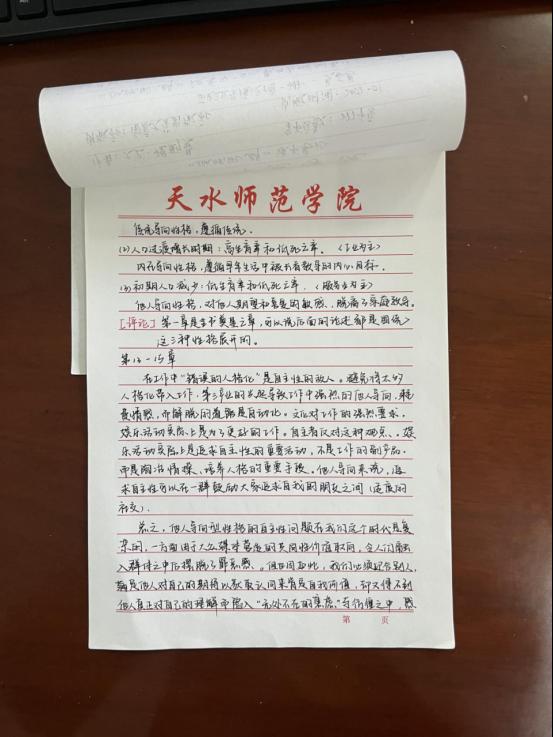 天水师范学院
传统导向性格,遵循传统。
(2)人口过渡增长时期:高生育率和低死亡率。(工业为主)
内在导向性格,遵循早年生活中被长者教导的内心目标。
(3)初期人口减少:低生育率和低死亡率。(服务业为主)
他人导向性格,对他人期望和喜爱的敏感,脱离了家庭教导。
[评论]第一章是全书奠基之章,可以说后面的论述都是围绕
这三种性格展开的。
第12-15章
在工作中"错误的人格化"是自主性的敌人。避免情太的
人格化带入工作,第三产业的兴起导致工作中强烈的他人导向,耗
费情感,而解脱的道路是自动化。文化对工作的强烈要求,
娱乐活动实际上是为了更好的工作。自主者反对这种观点,娱
乐活动实际上是追求自主性的重要活动,不是工作的副产品,
而是陶冶情操、培养人格的重要手段。他人导向来说,追
求自主性可以在一群鼓励大家追求自我的朋友之间(适度的
社交)。
总之,他人导向型性格的自主性问题在我们这个时代是复
杂的,一方面由于大众媒体营造的共同性价值取向,令人们融
入群体之中后摆脱了罪恶感。但也因如此,我们必须迎合别人,
他人对自己的期待以获取认同来肯定自我价值,却又得不到
他人真正对自己的理解而陷入"无处不在的焦虑"与彷徨之中,
第 页